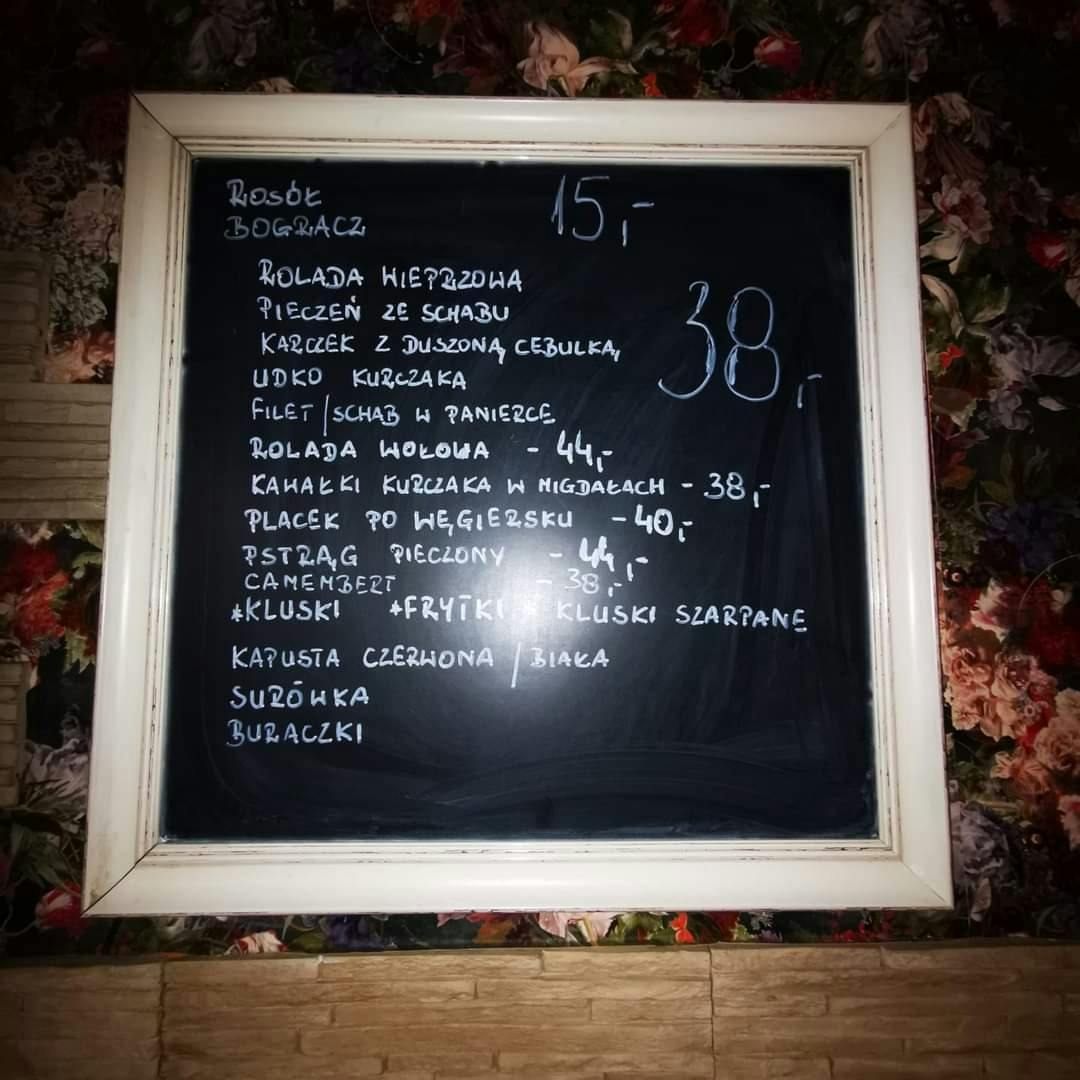 ROSÓŁ 15,-
BOGRACZ
ROLADA WIEPRZOWA
PIECZEŃ ZE SCHABU
KARCZEK Z DUSZONĄ CEBULKĄ 38,-
UDKO KURCZAKA
FILET/SCHAB W PANIERCE
ROLADA WOŁOWA - 44,-
KAWAŁKI KURCZAKA W MIGDAŁACH - 38,-
PLACEK PO WĘGIERSKU - 40,-
PSTRĄG PIECZONY - 44,-
CAMEMBERT - 38,-
*KLUSKI *FRYTKI * KLUSKI SZARPANE
KAPUSTA CZERWONA / BIAŁA
SURÓWKA
BURACZKI